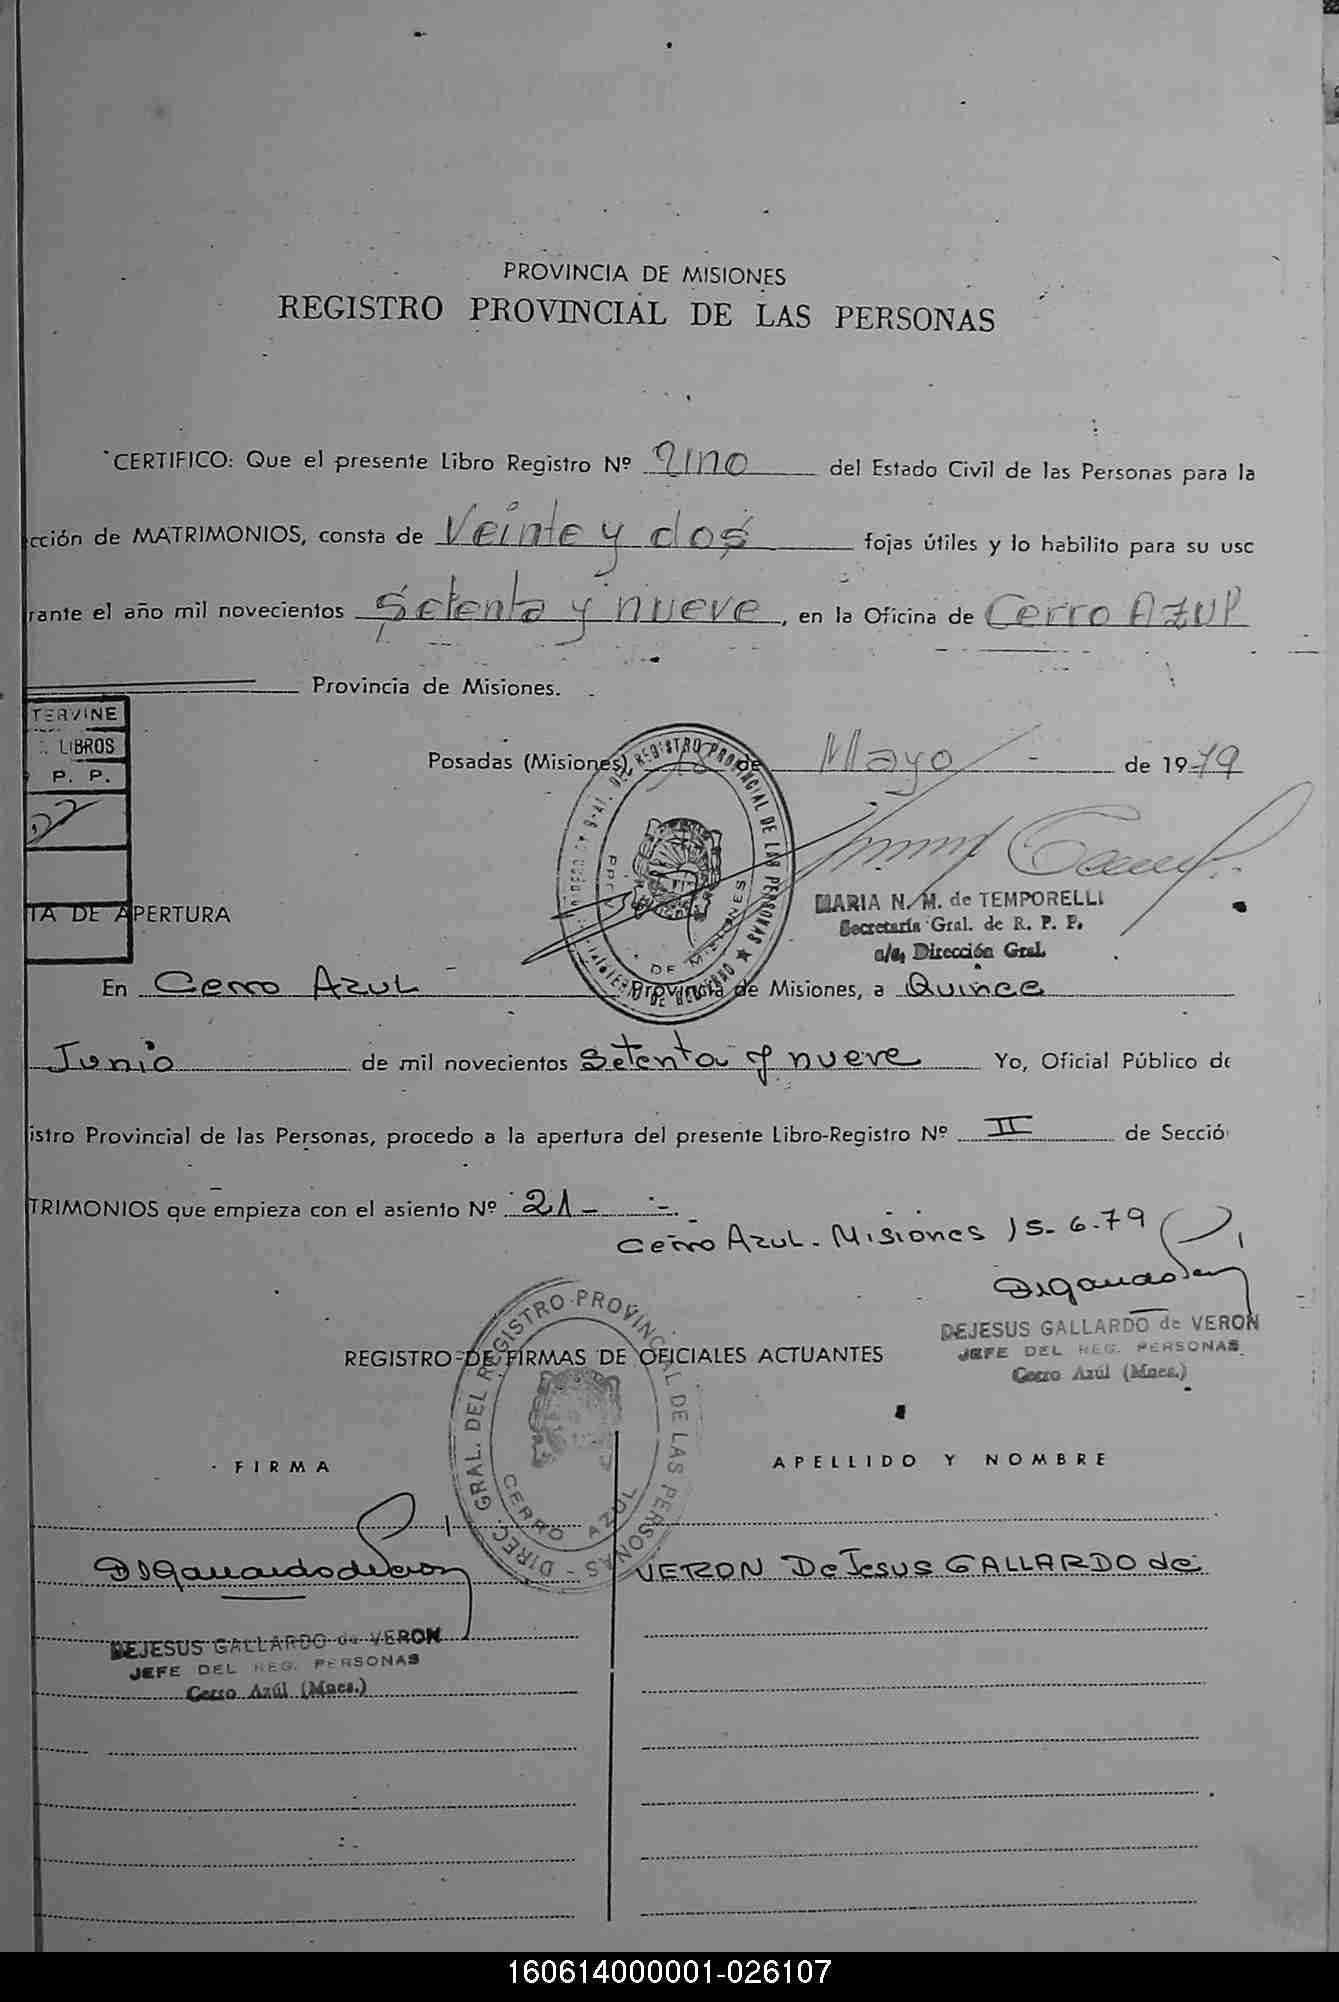 PROVINCIA DE MISIONES
REGISTRO PROVINCIAL DE LAS PERSONAS
CERTIFICO: Que el presente Libro Registro Nº uno del Estado Civil de las Personas para la
cción de MATRIMONIOS, consta de Veinte y dos fojas útiles y lo habilito para su uso
rante el año mil novecientos setenta y nueve, en la Oficina de Cerro Azul
Provincia de Misiones.
TERVINE
LIBROS
P. P.
Posadas (Misiones) de Mayo de 1979
MARIA N. M. de TEMPORELLI
Secretaría Gral. de R. P. P.
a/c. Dirección Gral.
TA DE APERTURA
En Cerro Azul Provincia de Misiones, a Quince
Junio de mil novecientos setenta y nueve Yo, Oficial Público de
istro Provincial de las Personas, procedo a la apertura del presente Libro-Registro Nº II de Secció
TRIMONIOS que empieza con el asiento Nº 21-
Cerro Azul. Misiones 15-6-79
DEJESUS GALLARDO de VERON
JEFE DEL REG. PERSONAS
Cerro Azúl (Mnes.)
REGISTRO DE FIRMAS DE OFICIALES ACTUANTES
DIREC. GRAL. DEL REGISTRO PROVINCIAL DE LAS PERSONAS
CERRO AZUL
FIRMA APELLIDO Y NOMBRE
VERON DeJesus GALLARDO de
DEJESUS GALLARDO de VERON
JEFE DEL REG. PERSONAS
Cerro Azúl (Mnes.)
160614000001-026107